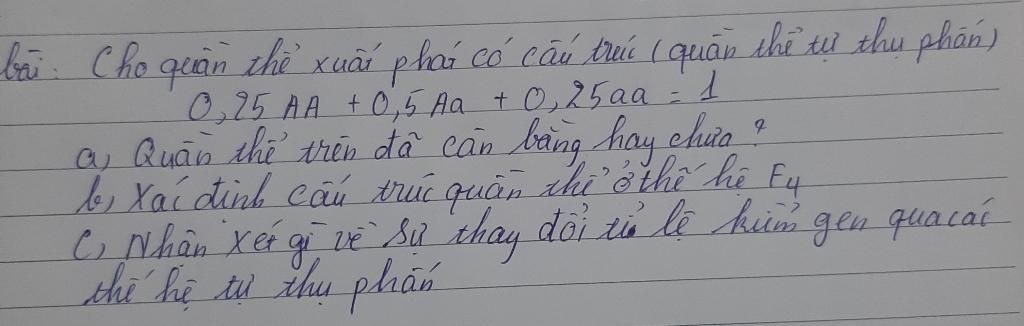 bài: Cho quần thể xuất phát có cấu trúc (quần thể tự thụ phấn)
0,25 AA + 0,5 Aa + 0,25aa = 1
a, Quần thể trên đã cân bằng hay chưa?
b, Xác định cấu trúc quần thể ở thế hệ F4
c, Nhận xét gì về sự thay đổi tỉ lệ kiểu gen qua các
thế hệ tự thụ phấn